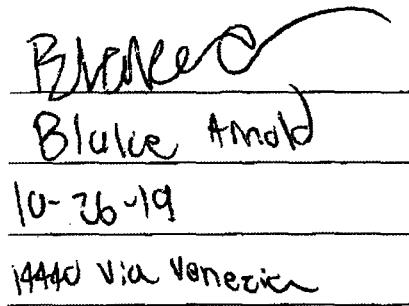 Blake
Blake Arnold
10-26-19
14440 Via Venezia